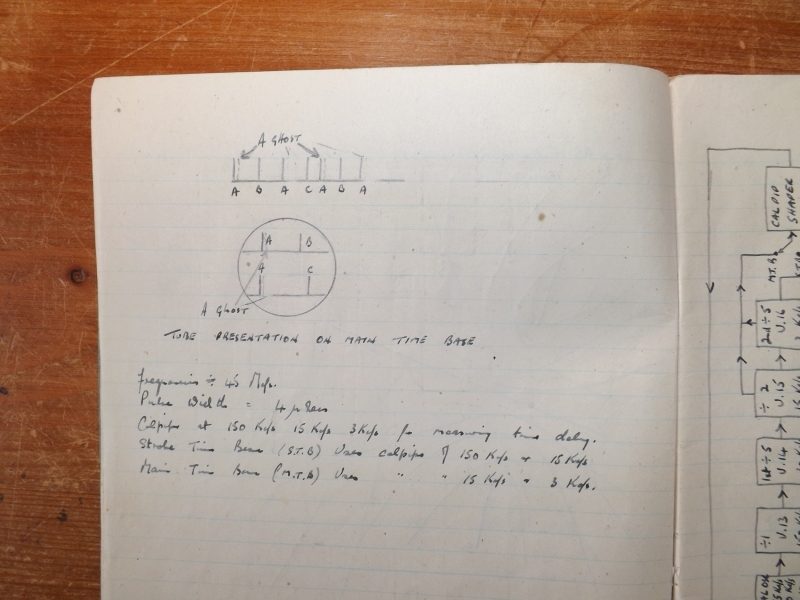 A GHOST
A B A C A B A
A B
A C
A GHOST
TUBE PRESENTATION ON MAIN TIME BASE
frequencies ÷ 45 Mc/s.
Pulse Width = 4 μ secs
Calpips at 150 Kc/s 15 Kc/s 3 Kc/s for measuring time delay.
Strobe Time Base (S.T.B) Uses calpips of 150 Kc/s + 15 Kc/s
Main Time Base (M.T.B) Uses " " 15 Kc/s " 3 Kc/s.
CALPIP
SHAPER
M.T.B
2nd ÷ 5
V.16
÷ 2
V.15
1st ÷ 5
V.14
÷1
V.13